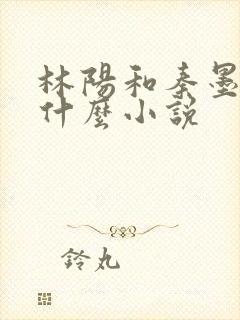 林陽和秦墨
什麼小說
鈴丸